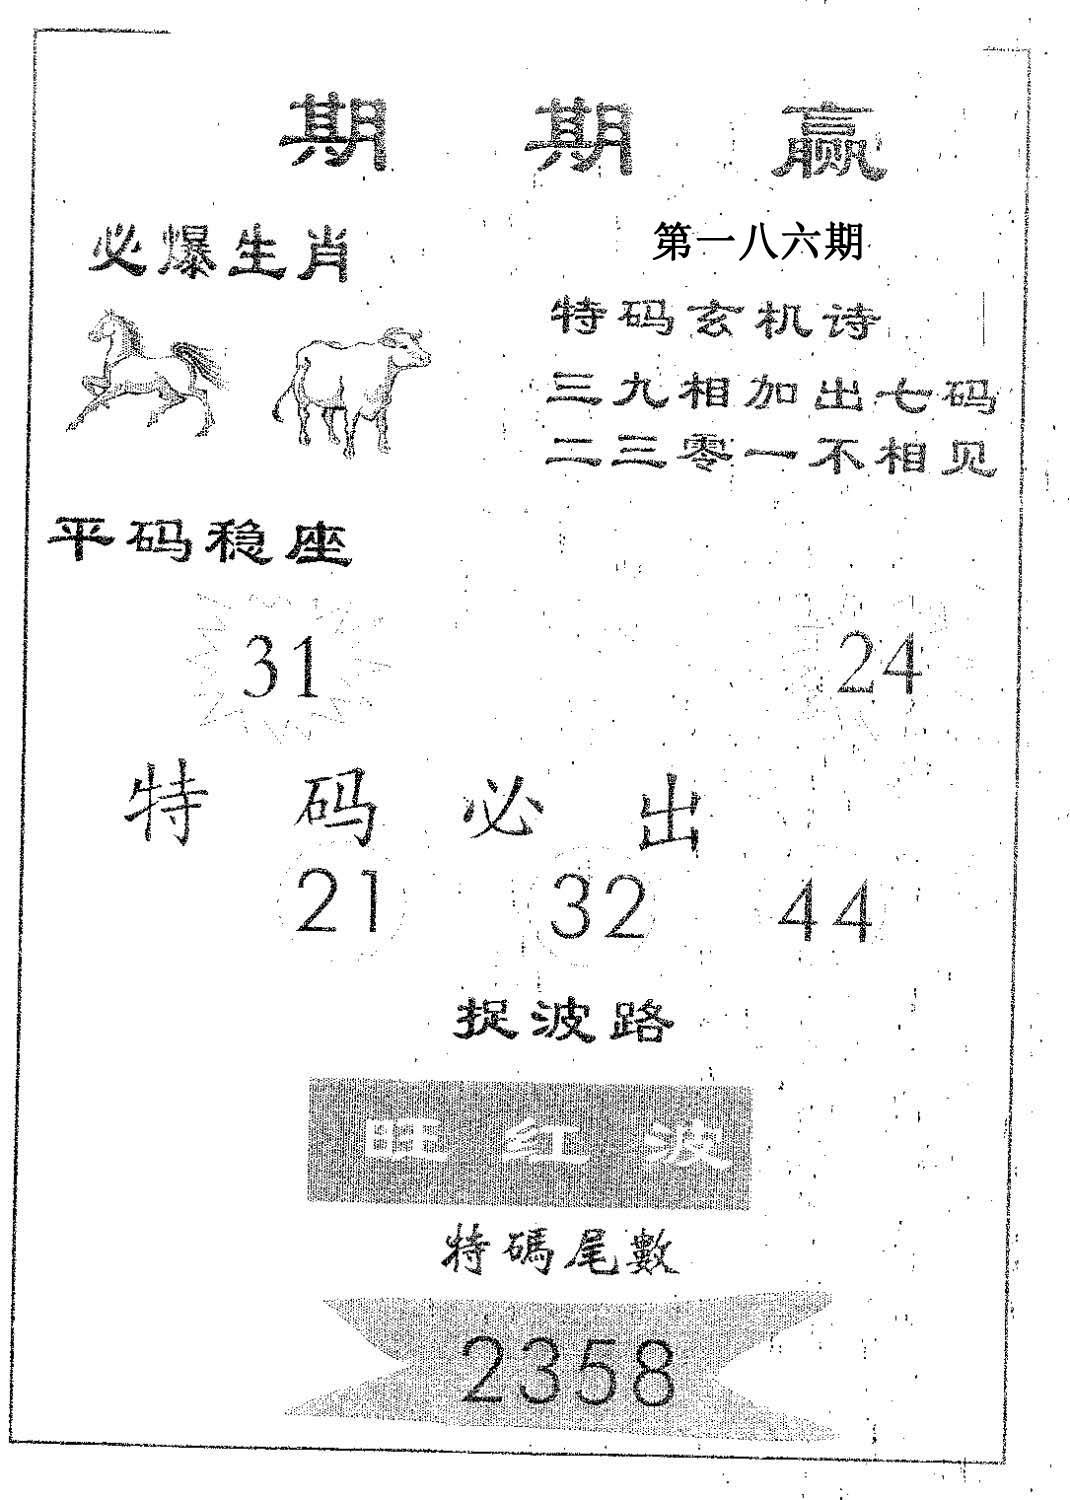 期期赢
必爆生肖
第一八六期
特码玄机诗
三九相加出七码
二三零一不相见
平码稳座
31 24
特码必出
21 32 44
捉波路
旺红波
特碼尾數
2358